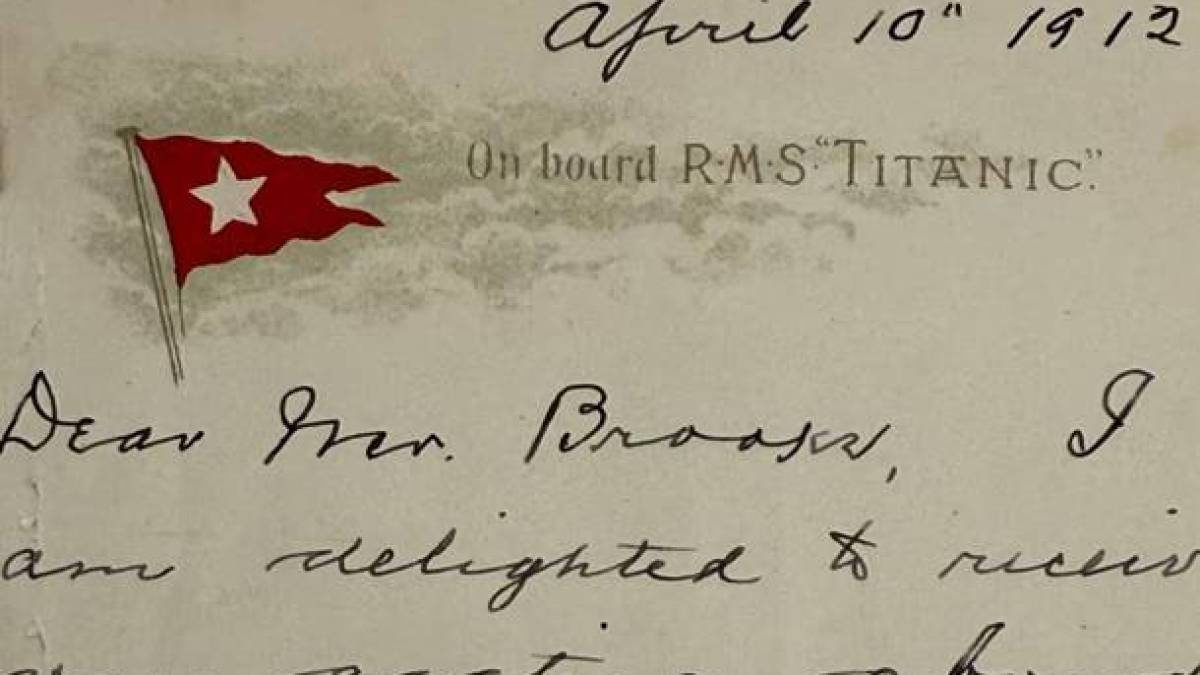 April 10" 1912
On board R·M·S·"TITANIC."
Dear Mr. Brooks, I
am delighted to receiv